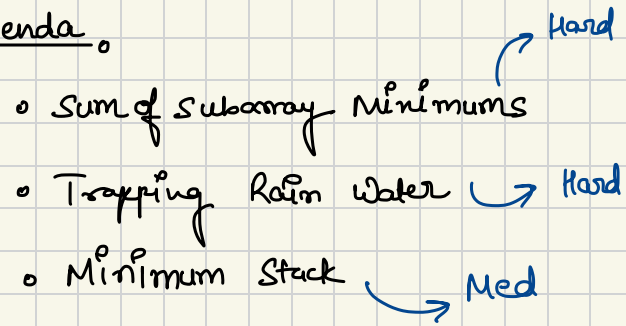 enda
Hard
• Sum of Subarray Minimums
• Trapping Rain Water Hard
• Minimum Stack Med